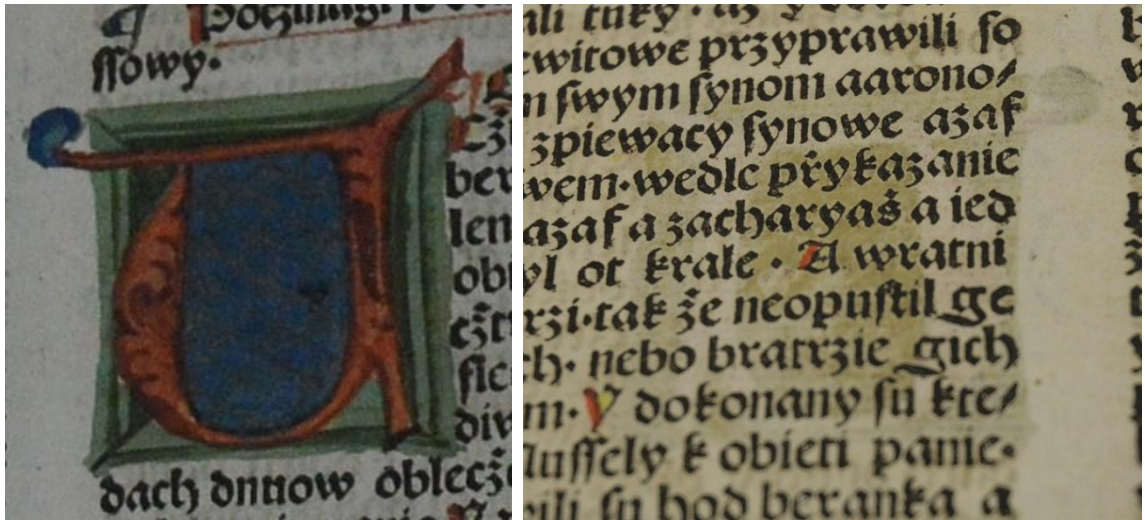 ssowy.
U
ber
len
obi
sie
dach dnuow obleczē
ali tuky. az
przyprawili so
swym synom aarono/
zpiewacy synowe azaf
wem. wedle přykazanie
azaf a zacharyaš a ied
yl ot krale. A wratni
rzi. tak že neopustil ge
ch. nebo bratrzie gich
m. Y dokonany su kte/
k obieti panie.
ili su hod beranka a